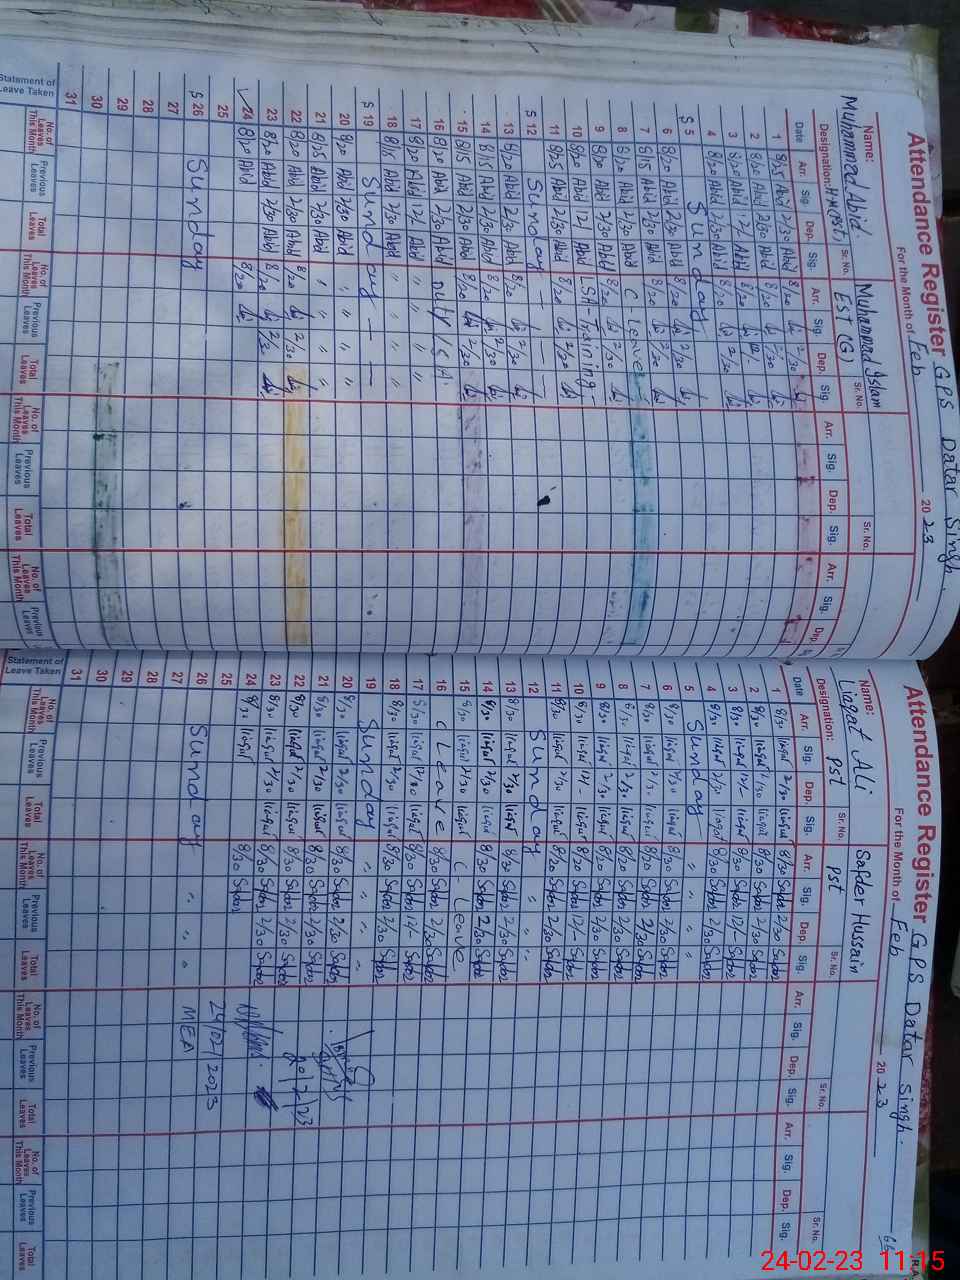 Attendance Register GPS Datar Singh
For the Month of Feb 2023
Name:
Muhammad Abid. Muhammad Islam
Designation: Sr. No. EST (G) Sr. No. Sr. No.
Date Arr. Sig. Dep. Sig. Arr. Sig. Dep. Sig. Arr. Sig. Dep. Sig. Arr. Sig. Dep.
1 8/25 Abid 2/30 Abid 8/20 2/30
2 8/20 Abid 2/30 Abid 8/20 2/30
3 8/20 Abid 12/ Abid 8/20 12/
4 8/20 Abid 2/30 Abid 8/20 2/30
S 5 Sunday
6 8/20 Abid 2/30 Abid 8/20 2/30
7 8/15 Abid 2/30 Abid 8/20 2/30
8 8/20 Abid 2/30 Abid C - Leave
9 8/20 Abid 2/30 Abid 8/20 2/30
10 8/20 Abid 12/ Abid LSA-Training-
11 8/25 Abid 2/30 Abid 8/20 2/30
S 12 Sunday - - - -
13 8/20 Abid 2/30 Abid 8/20 2/30
14 8/15 Abid 2/30 Abid 8/20 2/30
15 8/15 Abid 2/30 Abid 8/20 2/30
16 8/20 Abid 2/30 Abid Duty
17 8/20 Abid 12/ Abid " " " "
18 8/15 Abid 2/30 Abid " " " "
S 19 Sunday - - - -
20 8/20 Abid 2/30 Abid " " "
21 8/25 Abid 2/30 Abid " " "
22 8/20 Abid 2/30 Abid 8/20 2/30
23 8/20 Abid 2/30 Abid 8/20 2/30
24 8/20 Abid 8/20
25
S 26 Sunday
27
28
29
30
31
Statement of Leave Taken No. of Leaves This Month Previous Leaves Total Leaves No. of Leaves This Month Previous Leaves Total Leaves No. of Leaves This Month Previous Leaves Total Leaves No. of Leaves This Month Previous Leaves
Attendance Register GPS Datar Singh.
For the Month of Feb 2023
Name:
Liaqat Ali Safder Hussain
Designation: PST Sr. No. PST Sr. No. Sr. No. Sr. No.
Date Arr. Sig. Dep. Sig. Arr. Sig. Dep. Sig. Arr. Sig. Dep. Sig. Arr. Sig. Dep. Sig.
1 8/30 liaqat 2/30 liaqat 8/20 Safder 2/30 Safder
2 8/30 liaqat 2/30 liaqat 8/30 Safder 2/30 Safder
3 8/30 liaqat 12/- liaqat 8/30 Safder 12/- Safder
4 8/30 liaqat 2/30 liaqat 8/30 Safder 2/30 Safder
5 Sunday " " "
6 8/30 liaqat 2/30 liaqat 8/30 Safder 2/30 Safder
7 8/30 liaqat 2/30 liaqat 8/20 Safder 2/30 Safder
8 8/30 liaqat 2/30 liaqat 8/20 Safder 2/30 Safder
9 8/30 liaqat 2/30 liaqat 8/20 Safder 2/30 Safder
10 8/30 liaqat 12/- liaqat 8/20 Safder 12/- Safder
11 8/30 liaqat 2/30 liaqat 8/20 Safder 2/30 Safder
12 Sunday " " "
13 8/30 liaqat 2/30 liaqat 8/30 Safder 2/30 Safder
14 8/30 liaqat 2/30 liaqat 8/30 Safder 2/30 Safder
15 8/30 liaqat 2/30 liaqat C - Leave
16 C Leave 8/30 Safder 2/30 Safder
17 8/30 liaqat 12/30 liaqat 8/20 Safder 12/- Safder
18 8/30 liaqat 2/30 liaqat 8/30 Safder 2/30 Safder
19 Sunday " " " "
20 8/30 liaqat 2/30 liaqat 8/30 Safder 2/30 Safder
21 8/30 liaqat 2/30 liaqat 8/30 Safder 2/30 Safder
22 8/30 liaqat 2/30 liaqat 8/30 Safder 2/30 Safder 20/2/23
23 8/30 liaqat 2/30 liaqat 8/30 Safder 2/30 Safder
24 8/30 liaqat 8/30 Safder
25 24/02/2023
26 Sunday " " " MEA
27
28
29
30
31
Statement of Leave Taken No. of Leaves This Month Previous Leaves Total Leaves No. of Leaves This Month Previous Leaves Total Leaves No. of Leaves This Month Previous Leaves Total Leaves No. of Leaves This Month Previous Leaves Total Leaves
24-02-23 11:15